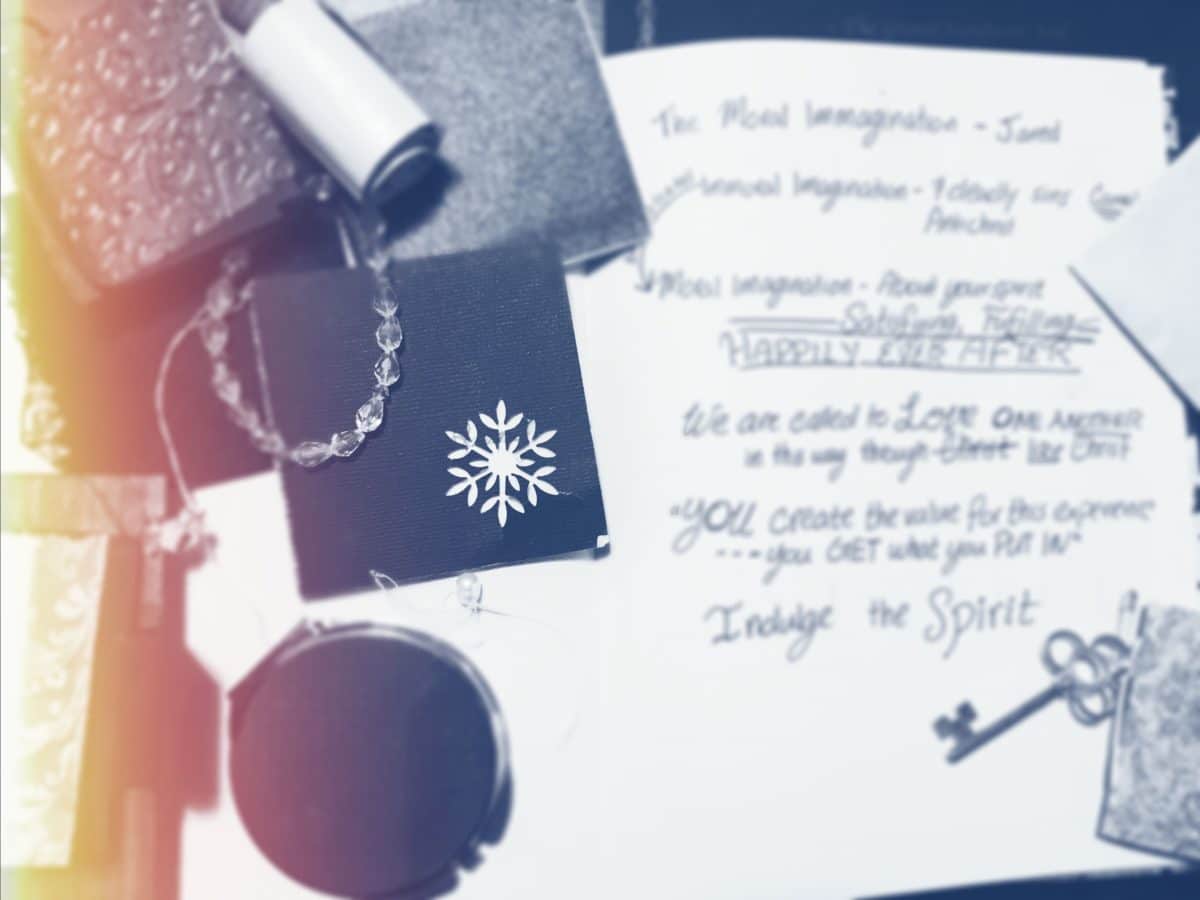 The Moral Immagination - Jared
Imagination - clearly sins
Antichrist
Moral Imagination - About your spirit
Satisfying, Fulfilling
HAPPILY EVER AFTER
We are called to LOVE ONE ANOTHER
in the way though Christ like Christ
"YOU create the value for this experience
---you GET what you PUT IN"
Indulge the Spirit